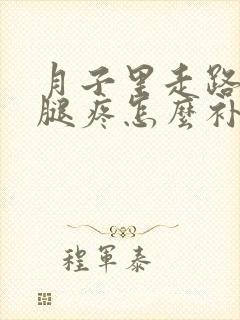 月子里走路
腿疼怎麼补
程軍泰